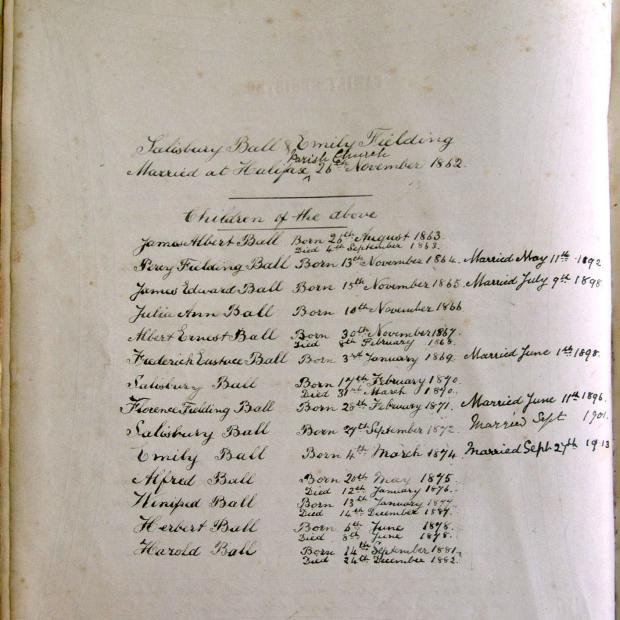 Salisbury Ball & Emily Fielding
Parish Church
Married at Halifax ^ 26th November 1862.
Children of the above
James Albert Ball Born 26th August 1863.
Died 4th September 1863.
Percy Fielding Ball Born 13th November 1864. Married May 11th 1892
James Edward Ball Born 15th November 1865. Married July 9th 1898
Julia Ann Ball Born 10th November 1866
Albert Ernest Ball Born 30th November 1867.
Died 8th February 1868.
Frederick Eustace Ball Born 3rd January 1869. Married June 1st 1898.
Salisbury Ball Born 17th February 1870.
Died 31st March 1870.
Florence Fielding Ball Born 28th February 1871. Married June 11th 1896.
Salisbury Ball Born 27th September 1872. Married Sept 1901.
Emily Ball Born 4th March 1874. Married Sept 27th 1913
Alfred Ball Born 20th May 1875.
Died 12th January 1876.
Winifred Ball Born 13th January 1877
Died 14th December
Herbert Ball Born 6th June 1878.
Died 8th June 1878.
Harold Ball Born 14th September 1881.
Died 24th December 1882.